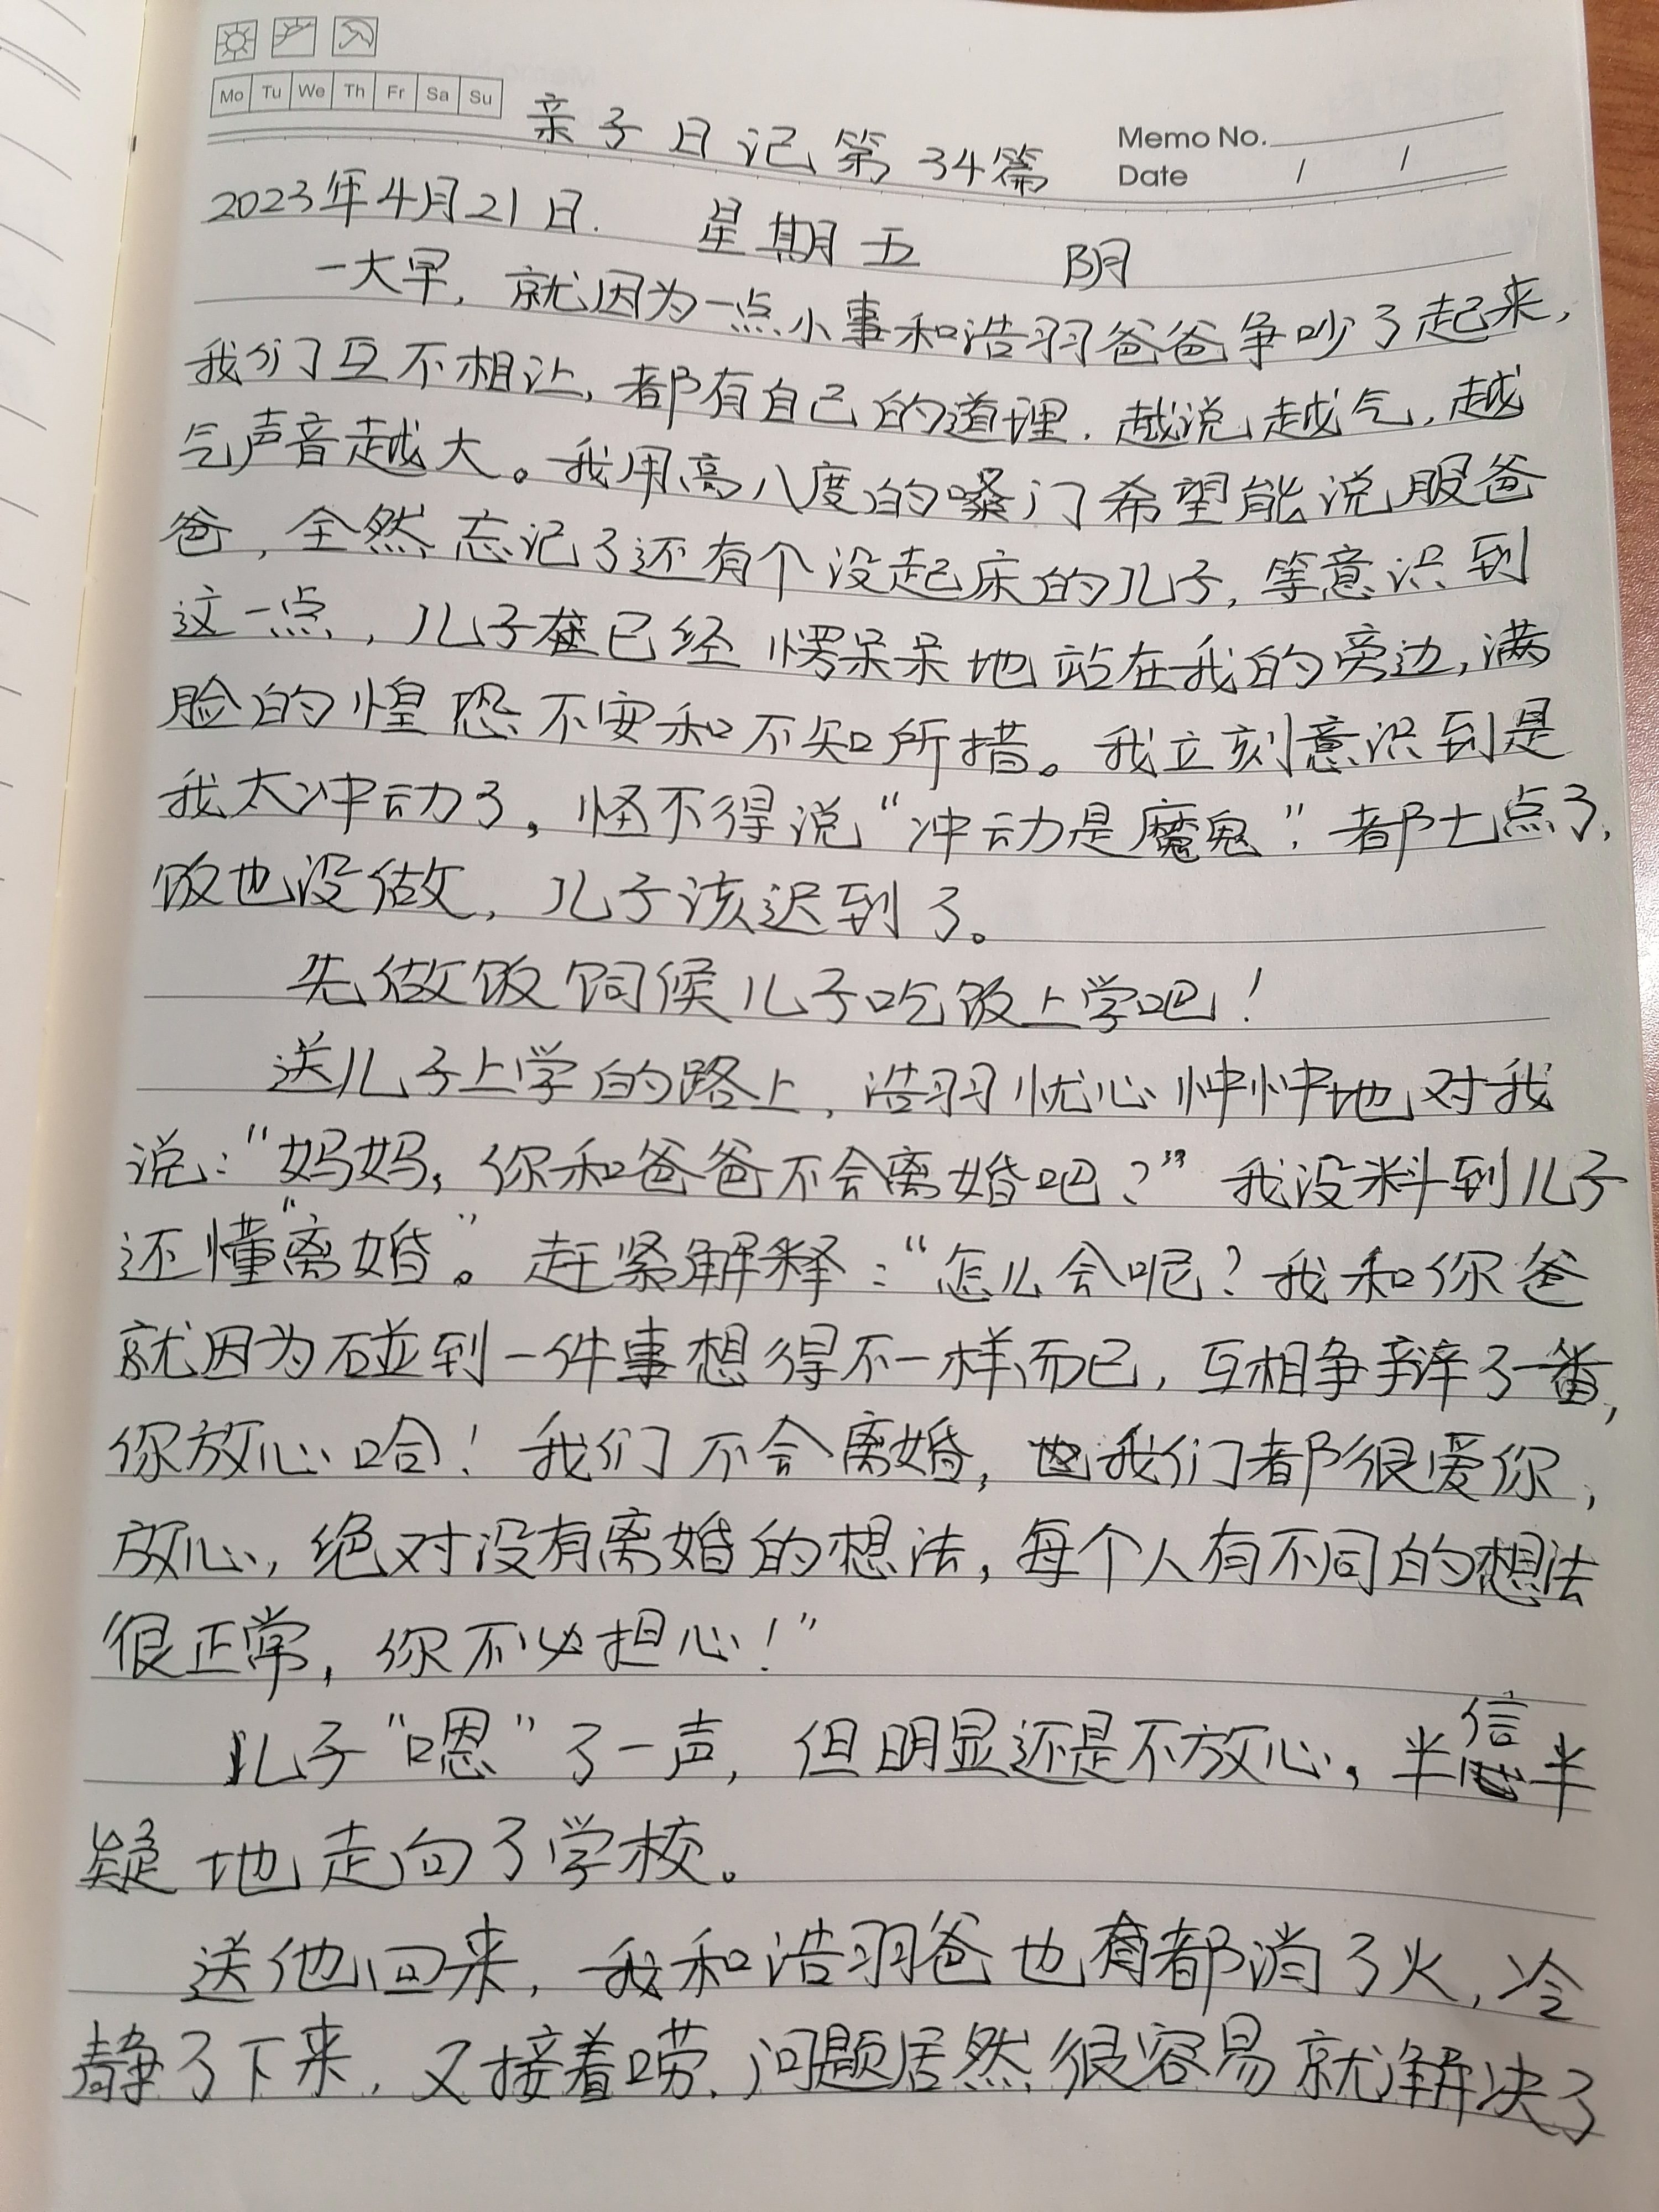 Mo Tu We Th Fr Sa Su
亲子日记第34篇
Memo No.
Date / /
2023年4月21日. 星期五 阴
一大早,就因为一点小事和浩羽爸爸争吵了起来,
我们互不相让,都有自己的道理.越说越气,越
气声音越大。我用高八度的嗓门希望能说服爸
爸,全然忘记了还有个没起床的儿子,等意识到
这一点,儿子已经愣呆呆地站在我的旁边,满
脸的惶恐不安和不知所措。我立刻意识到是
我太冲动了,怪不得说“冲动是魔鬼”.都七点了,
饭也没做,儿子该迟到了。
先做饭饲候儿子吃饭上学吧!
送儿子上学的路上,浩羽忧心忡忡地对我
说:“妈妈,你和爸爸不会离婚吧?”我没料到儿子
还懂“离婚”。赶紧解释:“怎么会呢?我和你爸
就因为碰到一件事想得不一样而已,互相争辩了一番,
你放心哈!我们不会离婚,我们都很爱你,
放心,绝对没有离婚的想法,每个人有不同的想法
很正常,你不必担心!”
儿子“嗯”了一声,但明显还是不放心,半信半
疑地走向了学校。
送他回来,我和浩羽爸也都消了火,冷
静了下来,又接着唠.问题居然很容易就解决了